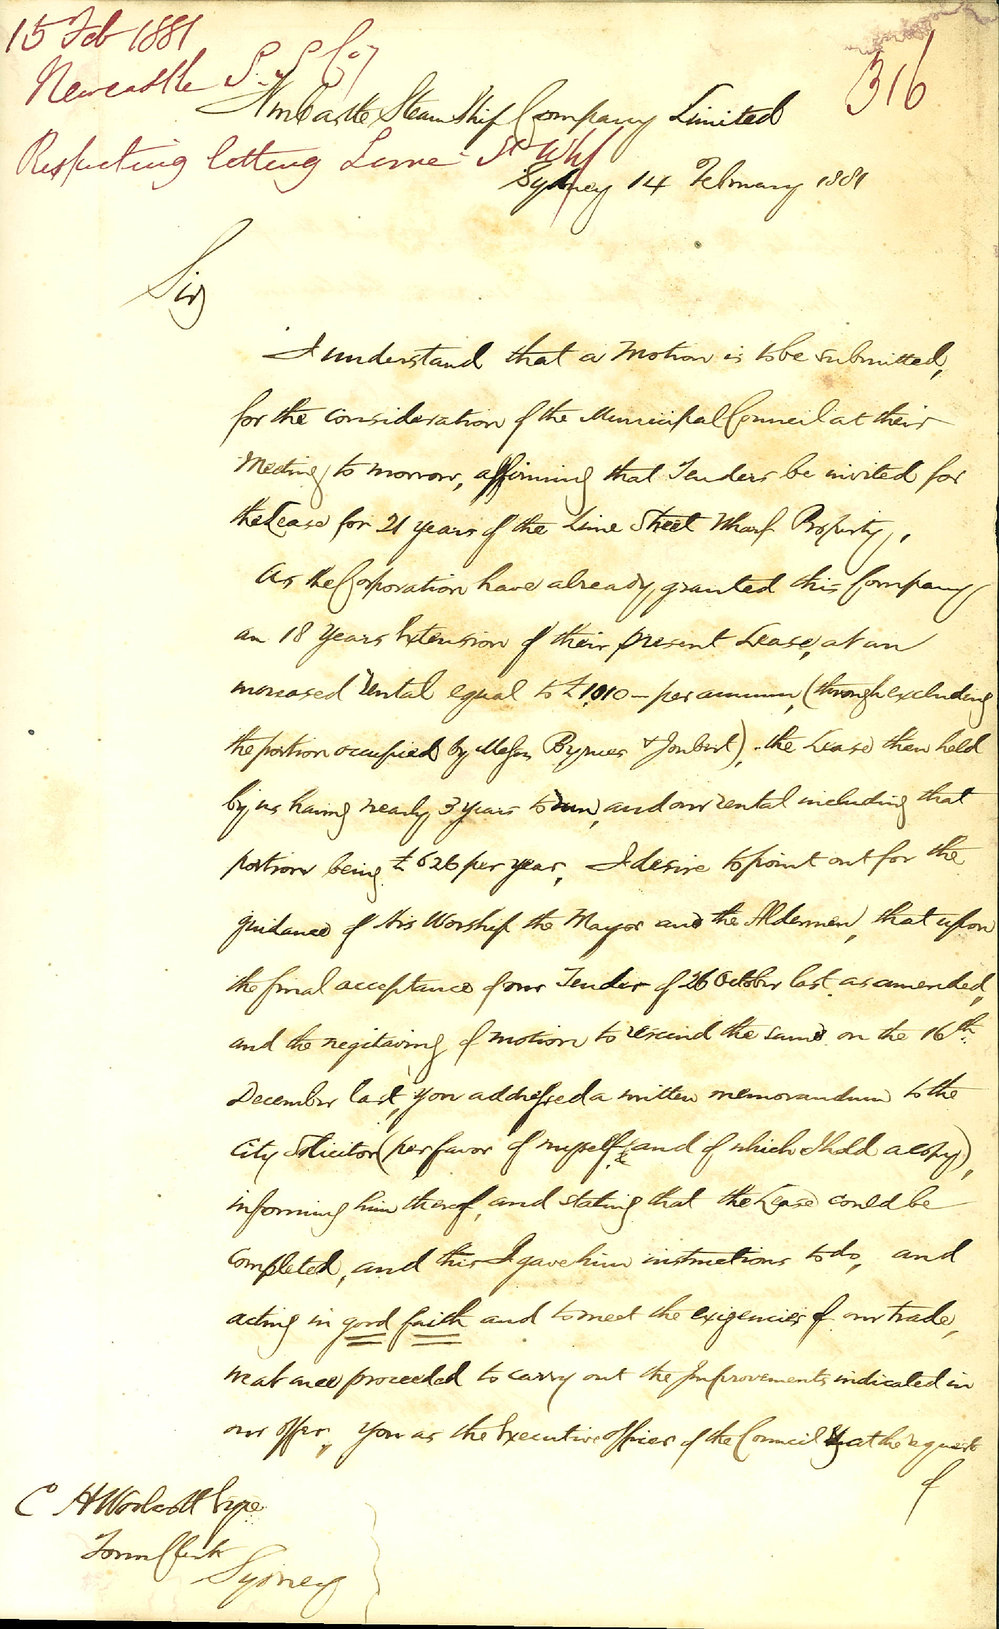 15 Feb 1881
316
Newcastle S.. S Coy
NewCastle Steam Ship Company Limited
Respecting letting Lime St Whf
Sydney 14 February 1881
Sir
I understand that a Motion is to be submitted,
for the consideration of the Municipal Council at their
Meeting to morrow, affirming that Tenders be invited for
the Lease for 21 years of the Lime Street Wharf Property,
As the Corporation have already granted this Company
an 18 Years Extension of their present Lease, at an
increased rental equal to £1,010 – per annum, (through excluding
the portion occupied by Messrs Byrnes & ), the Lease then held
by us having nearly 3 years to run, and our rental including that
portion being £626 per year, I desire to point out for the
guidance of His Worship the Mayor and the Aldermen, that upon
the final acceptance of our Tender of 26 October last as amended,
and the negitiving of motion to rescind the same on the 16th
December last, you addressed a written memorandum to the
City Solicitor (per favor of myself and of which I hold a copy),
informing him thereof, and stating that the Lease could be
completed, and this I gave him instructions to do, and
acting in good faith and to meet the exigencies of our trade,
we at once proceeded to carry out the Improvements indicated in
our offer, You as the Executive officer of the Council at the request
of
C H Woolcott Esqre
Town Clerk
Sydney